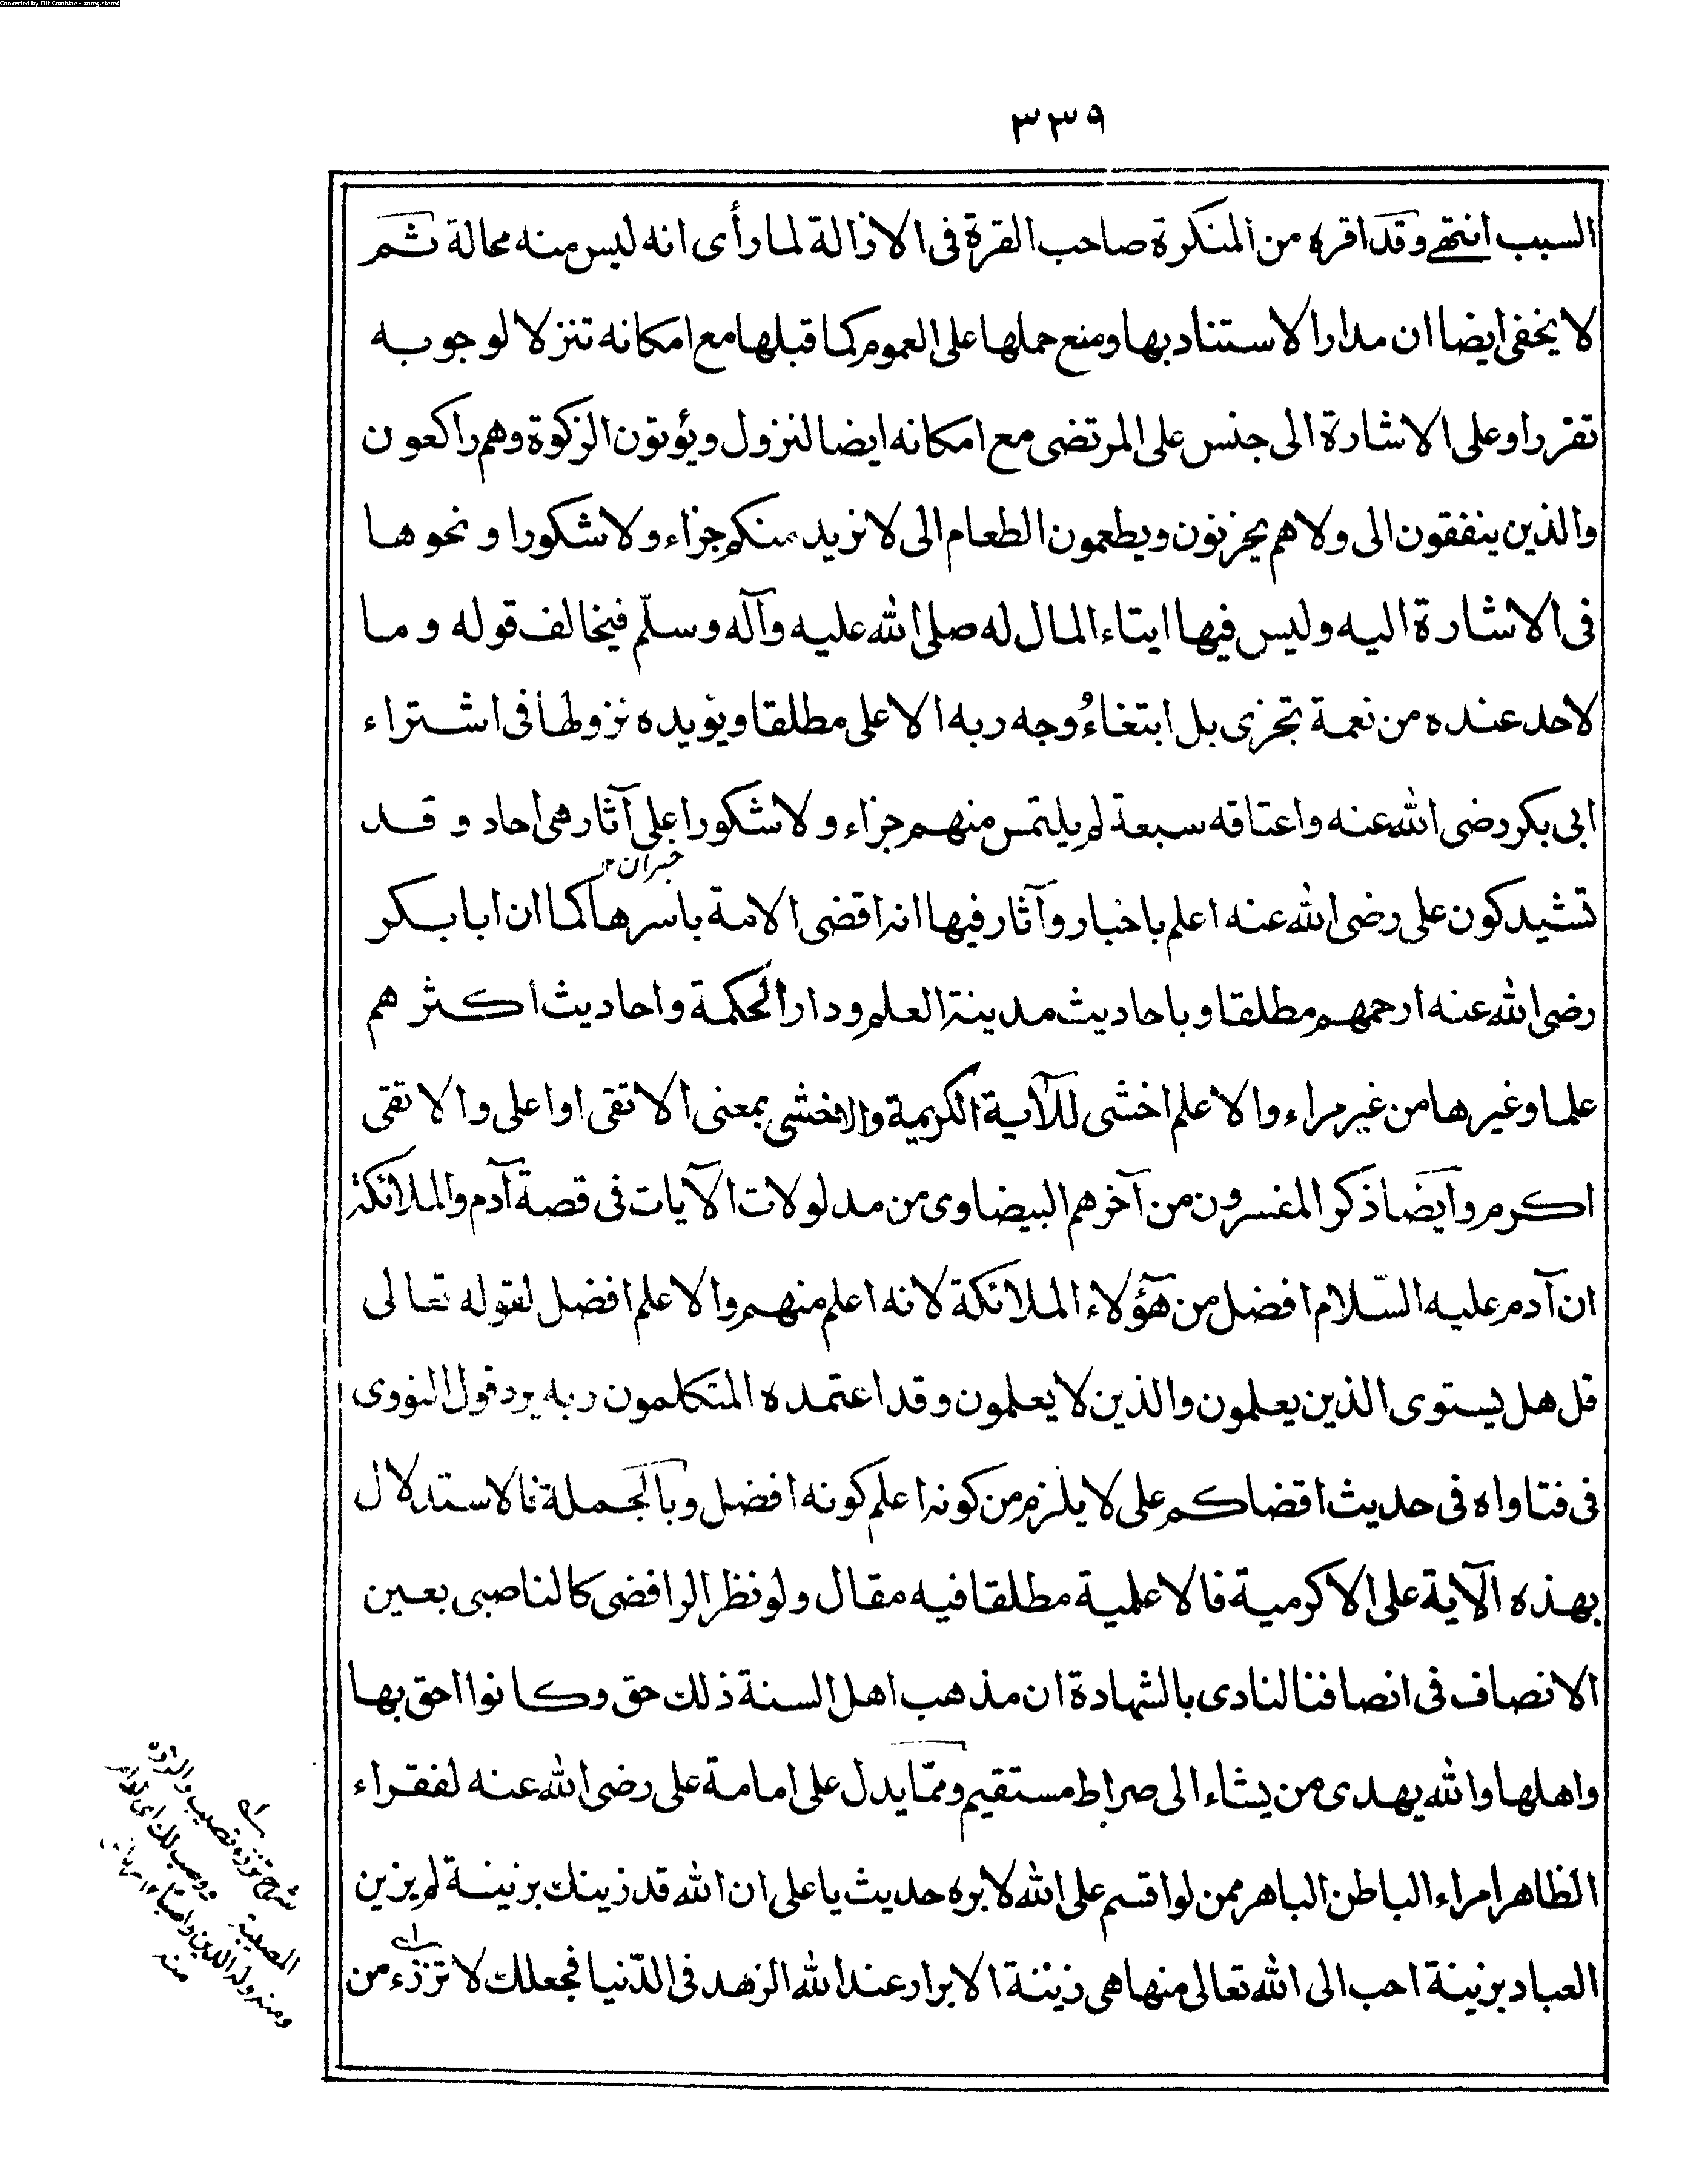 Converted by Tiff Combine - unregistered
٣٣٩
السبب انتهى وقد اقره من المنكرة صاحب القرة فى الازالة لما رأى انه ليس منه محالة ثم
لا يخفى ايضا ان مدار الاستناد بها ومنع حملها على العموم كما قبلها مع امكانه تنزلا لوجوبه
تقررا وعلى الاشارة الى جنس على المرتضى مع امكانه ايضا لنزول ويؤتون الزكوة وهم راكعون
والذين ينفقون الى ولا هم يحزنون ويطعمون الطعام الى لا نريد منكم جزاء ولا شكورا ونحوها
فى الاشارة اليه وليس فيها ايتاء المال له صلى الله عليه وآله وسلّم فيخالف قوله وما
لاحد عنده من نعمة تجزى بل ابتغاءُ وجه ربه الاعلى مطلقا ويؤيده نزولها فى اشتراء
ابى بكر رضى الله عنه واعتاقه سبعة لم يلتمس منهم جزاء ولا شكورا على آثار هى احاد وقد
خبران
تشيد كون على رضى الله عنه اعلم باخبار وآثار فيها انه اقضى الامة باسرها كما ان ابا بكر
رضى الله عنه ارحمهم مطلقا وباحاديث مدينة العلم ودار الحكمة واحاديث اكثرهم
علما وغيرها من غير مراء والاعلم اخشى للآية الكريمة والاخشى بمعنى الاتقى او اعلى والاتقى
اكرم وايضا ذكر المفسرون من آخرهم البيضاوى من مدلولات الآيات فى قصة آدم والملائكة
ان آدم عليه السّلام افضل من هؤلاء الملائكة لانه اعلم منهم والاعلم افضل لقوله تعالى
قل هل يستوى الذين يعلمون والذين لا يعلمون وقد اعتمده المتكلمون وبه يرد قول النووى
فى فتاواه فى حديث اقضاكم على لا يلزم من كونه اعلم كونه افضل وبالجملة فالاستدلال
بهذه الآية على الاكرمية فالاعلمية مطلقا فيه مقال ولو نظر الرافضى كالناصبى بعين
الانصاف فى انصافنا لنادى بالشهادة ان مذهب اهل السنة ذلك حق وكانوا احق بها
واهلها والله يهدى من يشاء الى صراط مستقيم وممّا يدل على امامة على رضى الله عنه لفقراء
الظاهر امراء الباطن الباهر ممن لو اقسم على الله لابره حديث يا على ان الله قد زينك بزينة لم يزين
العباد بزينة احب الى الله تعالى منها هى زينة الابرار عند الله الزهد فى الدّنيا فجعلك لا ترزء من
شرح ترزء تصيب والرزء
المصيبة
ومنه وله الدين واصبا
منه